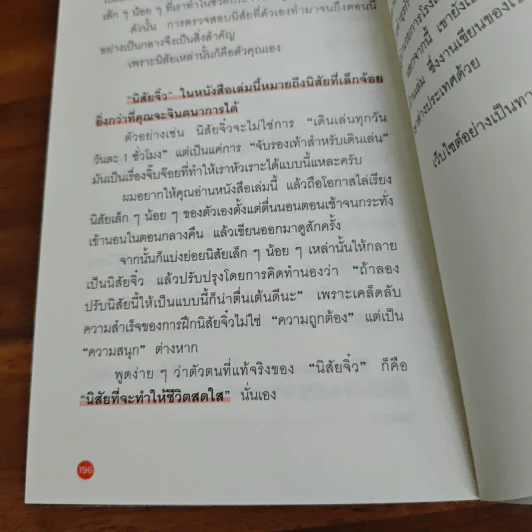 เล็ก ๆ น้อย ๆ ที่เราทำในชีวิต
ดังนั้น การตรวจสอบนิสัยที่ตัวเองทำมาจนถึงตอนนี้
อย่างเป็นกลางจึงเป็นสิ่งสำคัญ
เพราะนิสัยเหล่านั้นก็คือตัวคุณเอง
"นิสัยจิ๋ว" ในหนังสือเล่มนี้หมายถึงนิสัยที่เล็กจ้อย
ยิ่งกว่าที่คุณจะจินตนาการได้
ตัวอย่างเช่น นิสัยจิ๋วจะไม่ใช่การ "เดินเล่นทุกวัน
วันละ 1 ชั่วโมง" แต่เป็นแค่การ "จับรองเท้าสำหรับเดินเล่น"
มันเป็นเรื่องจิ๊บจ๊อยที่ทำให้เราหัวเราะได้แบบนี้แหละครับ
ผมอยากให้คุณอ่านหนังสือเล่มนี้ แล้วถือโอกาสไล่เรียง
นิสัยเล็ก ๆ น้อย ๆ ของตัวเองตั้งแต่ตื่นนอนตอนเช้าจนกระทั่ง
เข้านอนในตอนกลางคืน แล้วเขียนออกมาดูสักครั้ง
จากนั้นก็แบ่งย่อยนิสัยเล็ก ๆ น้อย ๆ เหล่านั้นให้กลาย
เป็นนิสัยจิ๋ว แล้วปรับปรุงโดยการคิดทำนองว่า "ถ้าลอง
ปรับนิสัยนี้ให้เป็นแบบนี้ก็น่าตื่นเต้นดีนะ" เพราะเคล็ดลับ
ความสำเร็จของการฝึกนิสัยจิ๋วไม่ใช่ "ความถูกต้อง" แต่เป็น
"ความสนุก" ต่างหาก
พูดง่าย ๆ ว่าตัวตนที่แท้จริงของ "นิสัยจิ๋ว" ก็คือ
"นิสัยที่จะทำให้ชีวิตสดใส" นั่นเอง
196
นอกจากนี้ เขายัง
ซึ่งงานเขียนของ
ต่างประเทศด้วย
เว็บไซต์อย่างเป็นทา